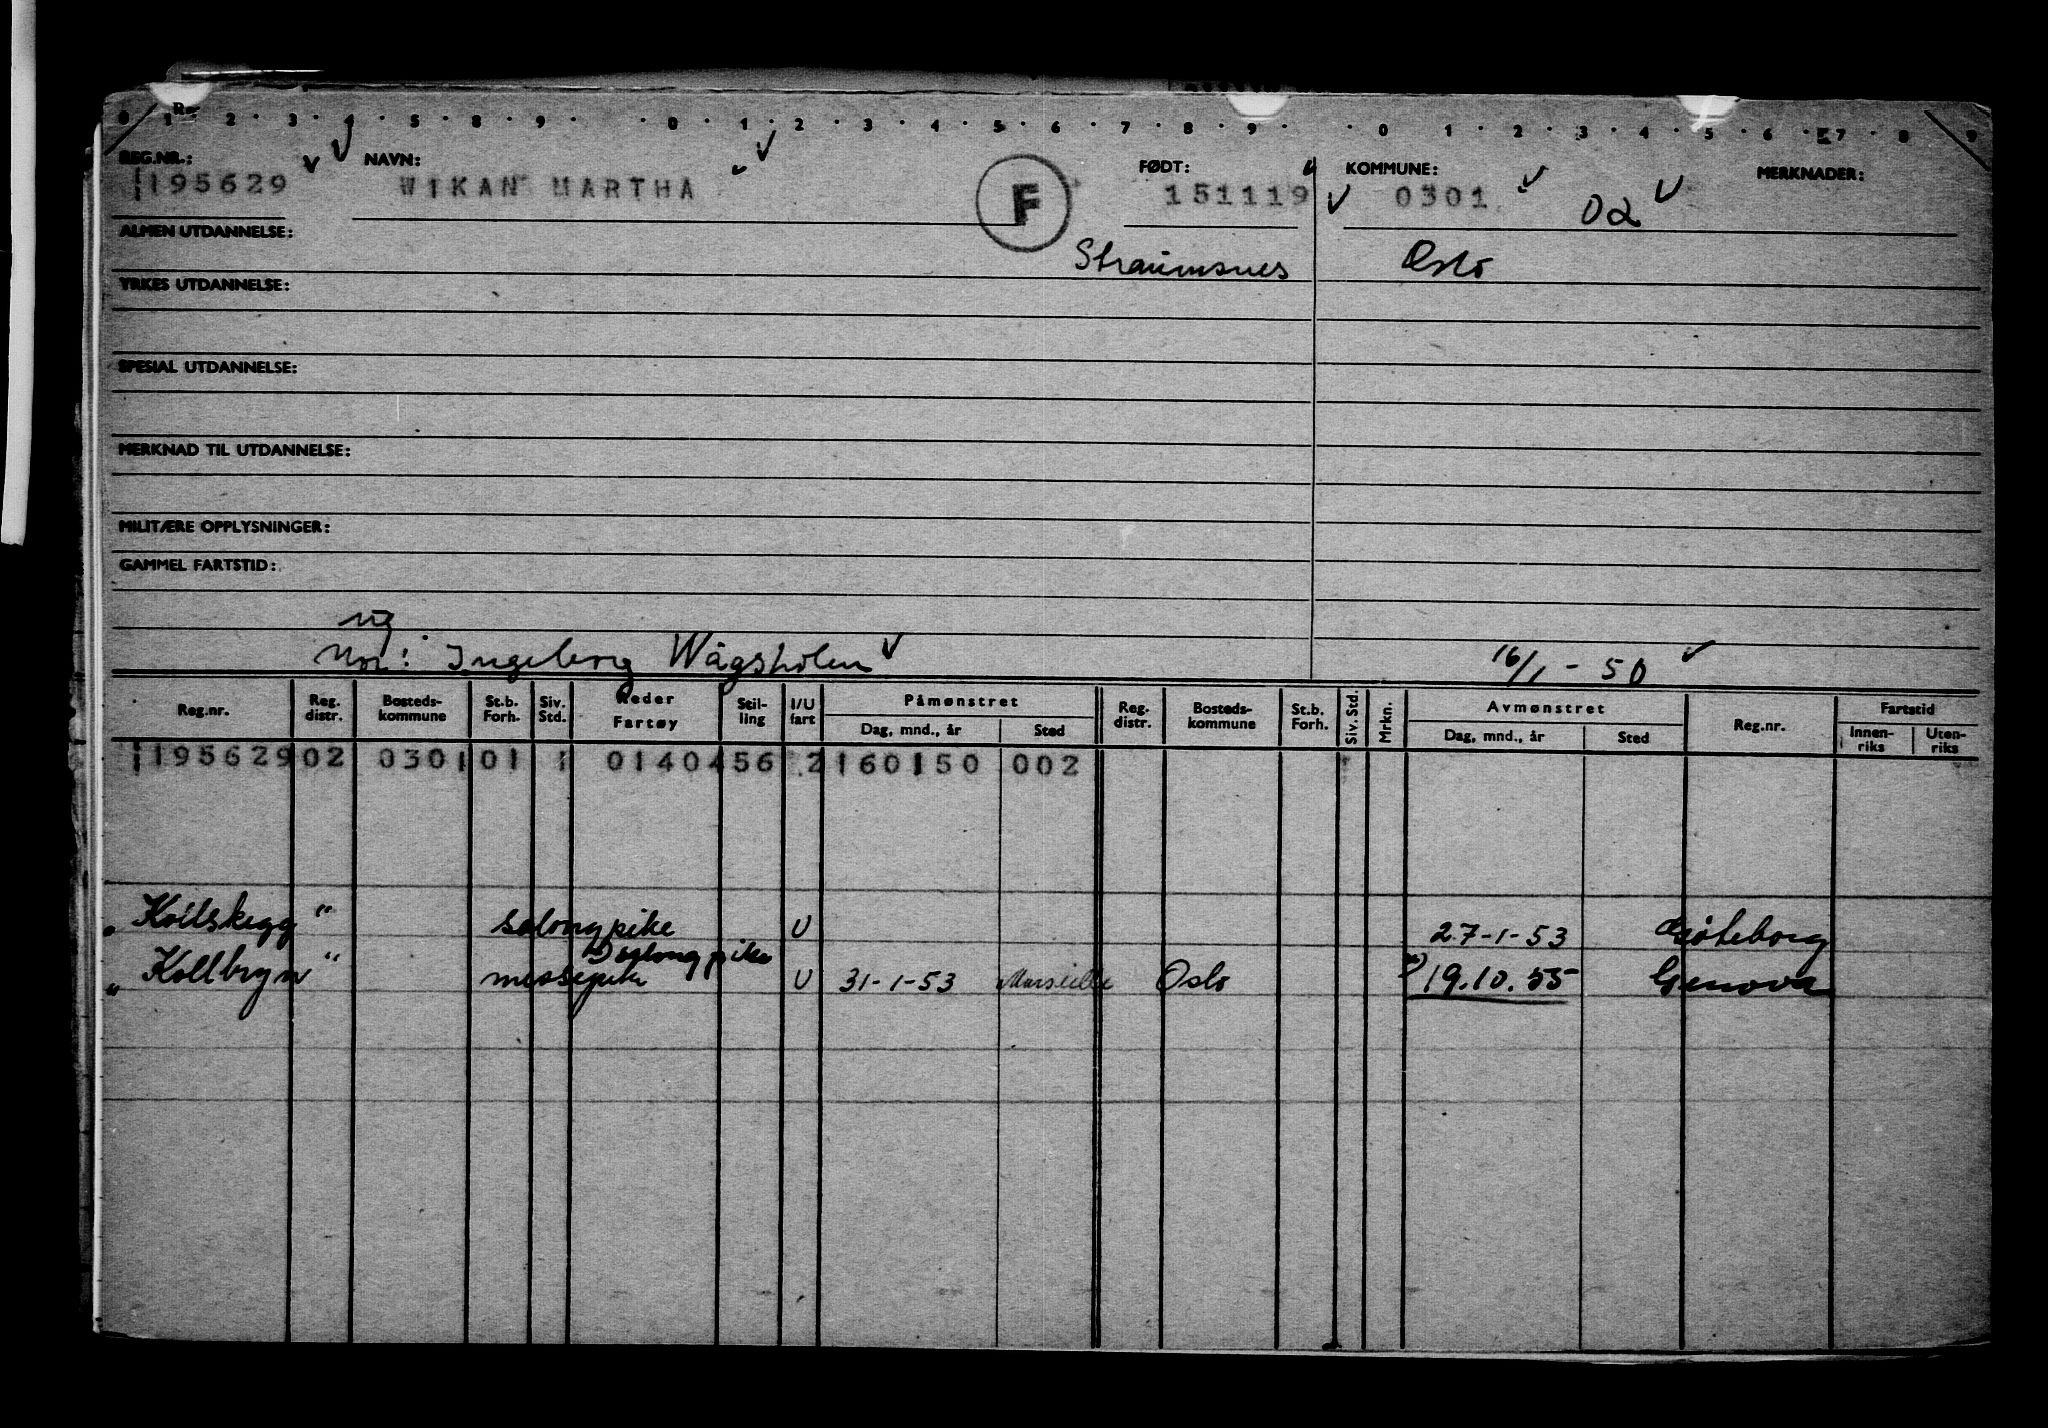 0 1 2 3 4 5 6 8 9 0 1 2 3 4 5 6 7 8 9 0 1 2 3 4 5 6 7 8 9
REG.NR.: NAVN: FØDT: KOMMUNE: MERKNADER:
195629 WIKAN MARTHA F 151119 0301 02
ALMEN UTDANNELSE: Straumsnes Oslo
YRKES UTDANNELSE:
SPESIAL UTDANNELSE:
MERKNAD TIL UTDANNELSE:
MILITÆRE OPPLYSNINGER:
GAMMEL FARTSTID:
Mor: Ingeborg Wågsholm 16/1 - 50
Reg.nr. Reg. distr. Bosteds-kommune St.b. Forh. Siv. Std. Reder Fartøy Stil-ling I/U fart Påmønstret Dag, mnd., år Sted Reg. distr. Bosteds-kommune St.b. Forh. Siv. Std. Mrkn. Avmønstret Dag, mnd., år Sted Reg.nr. Fartstid Innen-riks Uten-riks
195629 02 0301 01 1 01404 56 2 160150 002
Kollskegg " salongpike U 27-1-53 Gøteborg
Salongpike
" Kollbryn " messepike U 31-1-53 Marseille Oslo 19.10.55 Genova